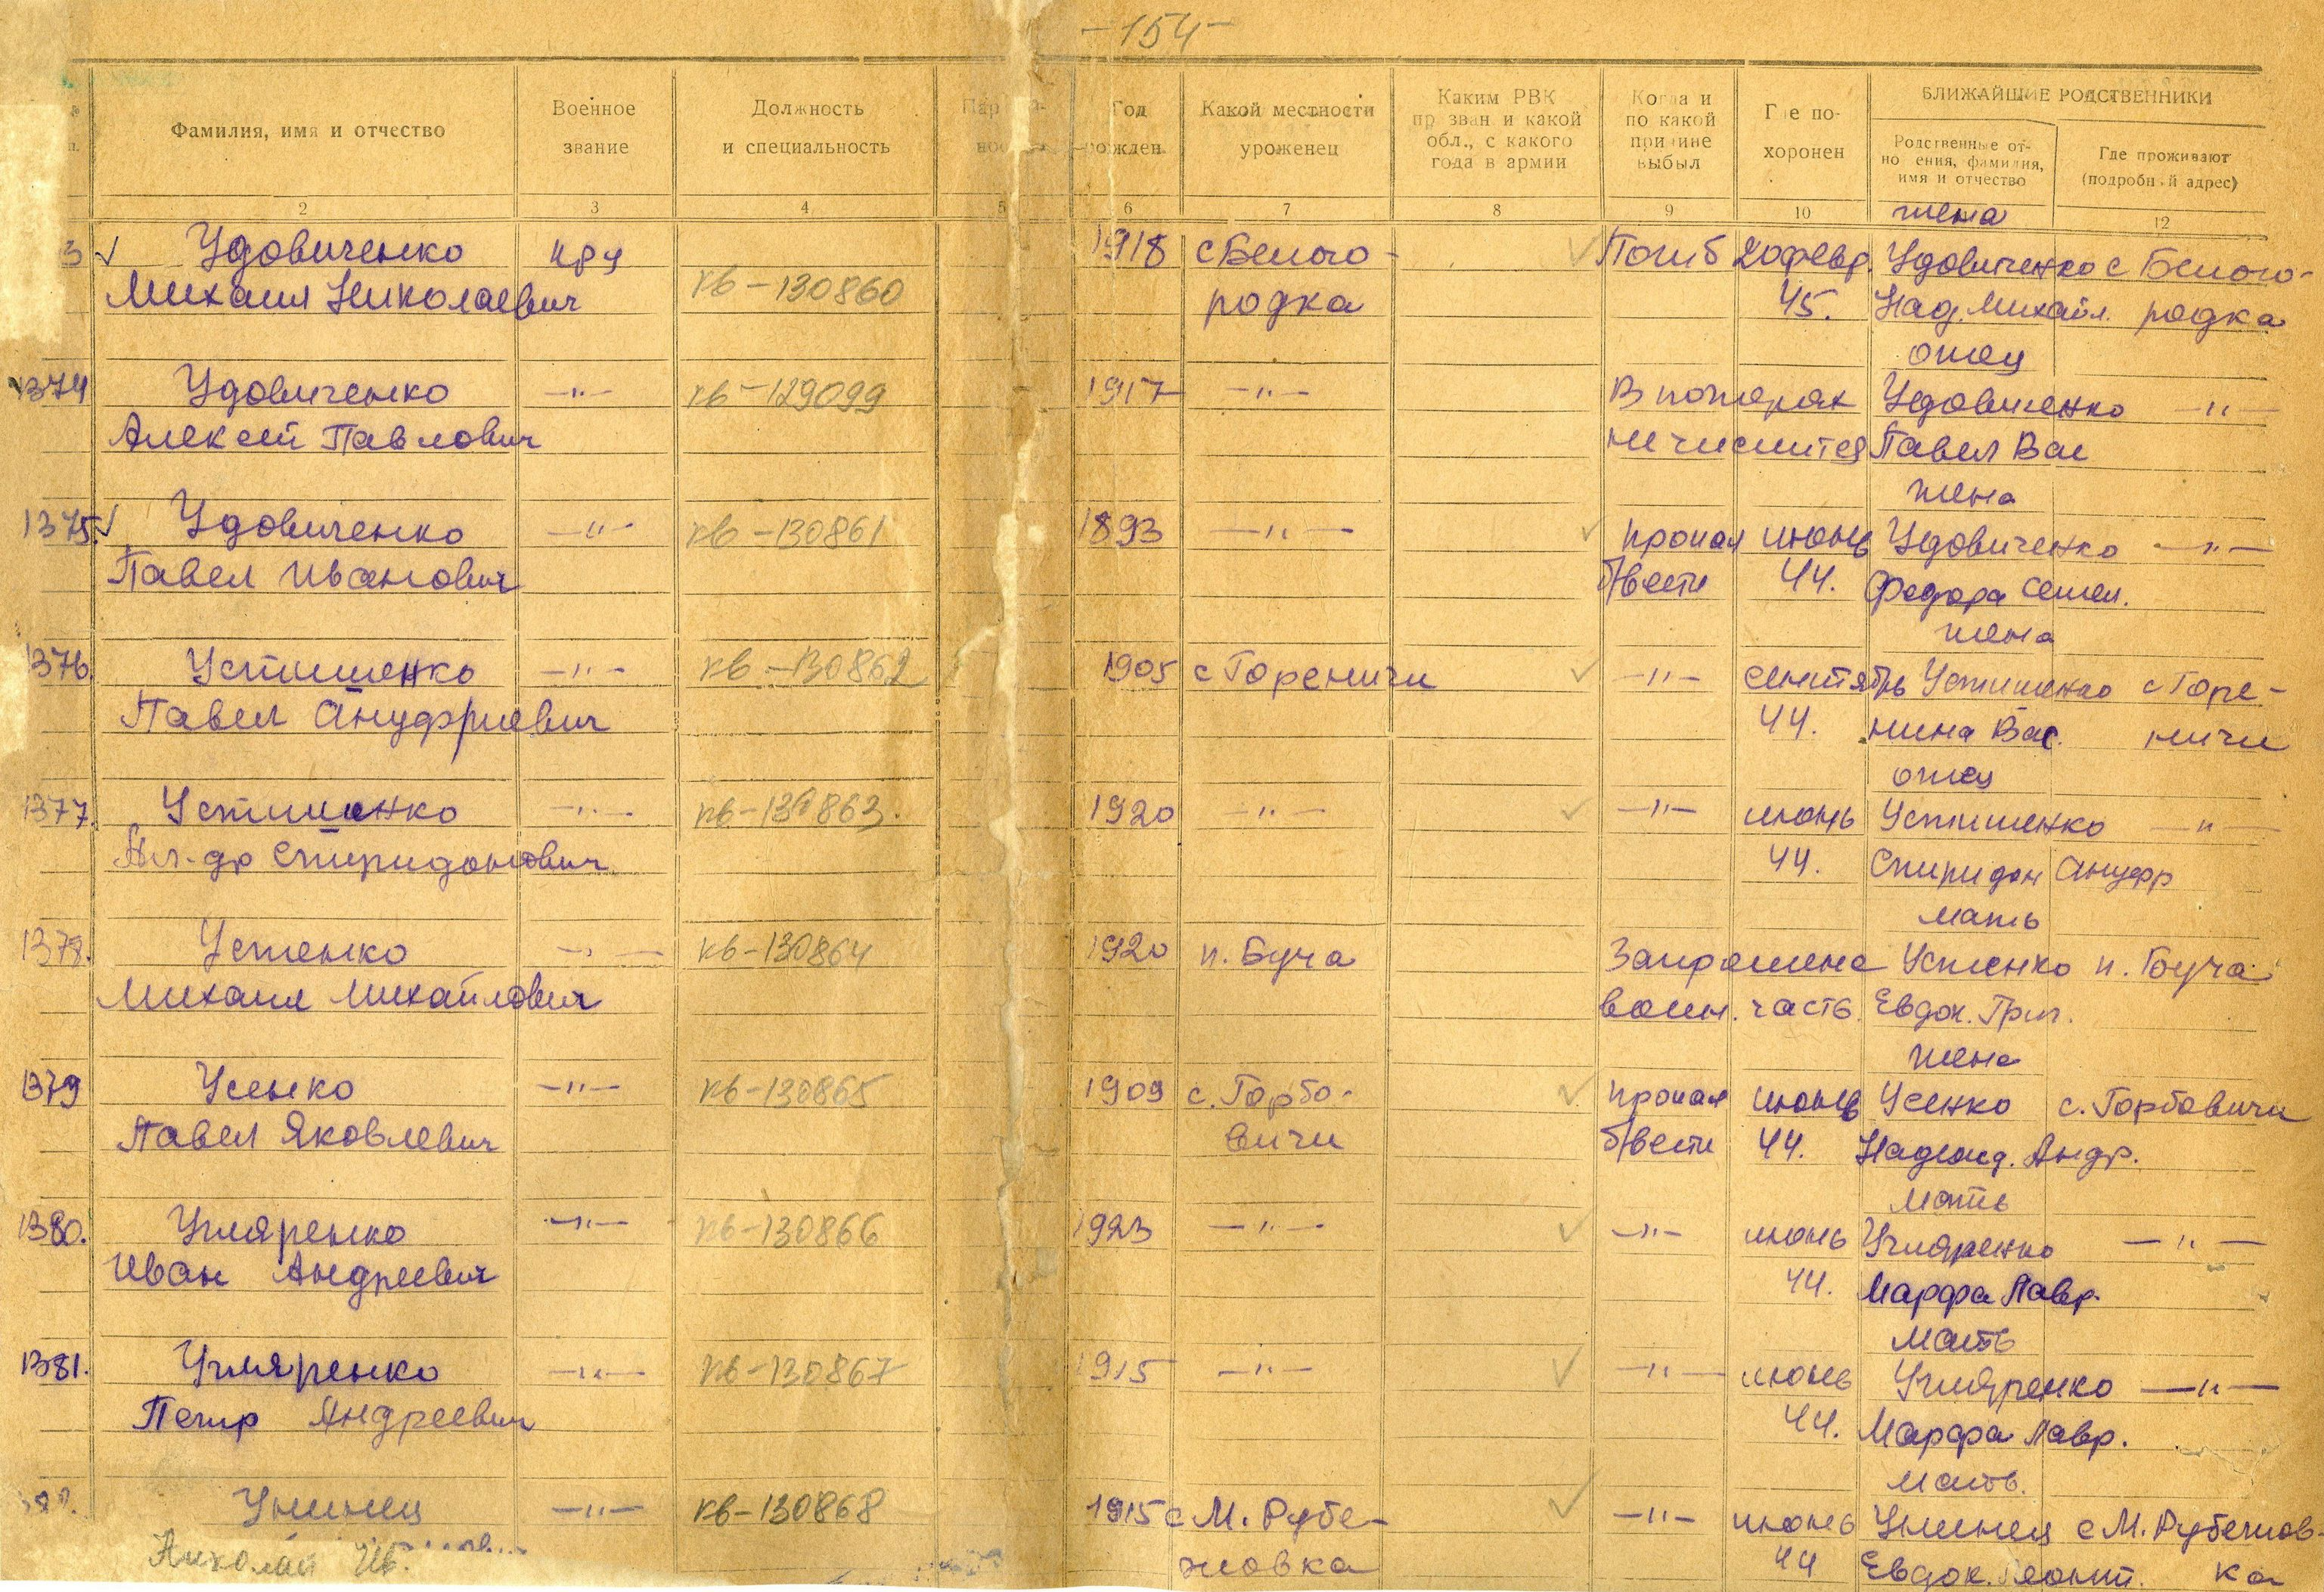 -154-
Фамилия, имя и отчество
Военное звание
Должность и специальность
Год рожден.
Какой местности уроженец
Каким РВК призван и какой обл., с какого года в армии
Когда и по какой причине выбыл
Где похоронен
БЛИЖАЙШИЕ РОДСТВЕННИКИ
Родственные отношения, фамилия, имя и отчество
Где проживают (подробный адрес)
2 3 4 5 6 7 8 9 10 12
жена
3 Удовиченко кр-ц 1918 с Белого- Погиб 20 февр. Удовиченко с Белого-
Михаил Николаевич кв-130860 родка 45. Над. Михайл. родка
отец
1374 Удовиченко -"- кв-129099 1917 -"- В потерях Удовиченко -"-
Алексей Павлович не числится Павел Вас
жена
1375. Удовиченко -"- кв-130861 1893 -"- пропал июнь Удовиченко -"-
Павел Иванович б/вести 44. Федора Семен.
жена
1376. Устименко -"- кв-130862 1905 с Гореничи -"- сентябрь Устименко с Горе-
Павел Ануфриевич 44. нина Вас. ничи
отец
1377. Устименко -"- кв-130863. 1920 -"- -"- июнь Устименко -"-
Ал-др Спиридонович 44. Спиридон Ануфр
мать
1378. Устенко -"- кв-130864 1920 п. Буча Запрошена Устенко п. Буча
Михаил Михайлович воин. часть. Евдок. Григ.
жена
1379 Усенко -"- кв-130865 1909 с. Горбо- пропал июнь Усенко с. Горбовичи
Павел Яковлевич вичи б/вести 44. Надежд. Андр.
мать
1380. Угляренко -"- кв-130866 1923 -"- -"- июнь Угляренко -"-
Иван Андреевич 44. Марфа Лавр.
мать
1381. Угляренко -"- кв-130867 1915 -"- -"- июнь Угляренко -"-
Петр Андреевич 44. Марфа Лавр.
мать.
-"- кв-130868 1915 с М. Рубе- -"- июнь с М. Рубежов-
Николай Ив. жовка 44 Евдок. ка